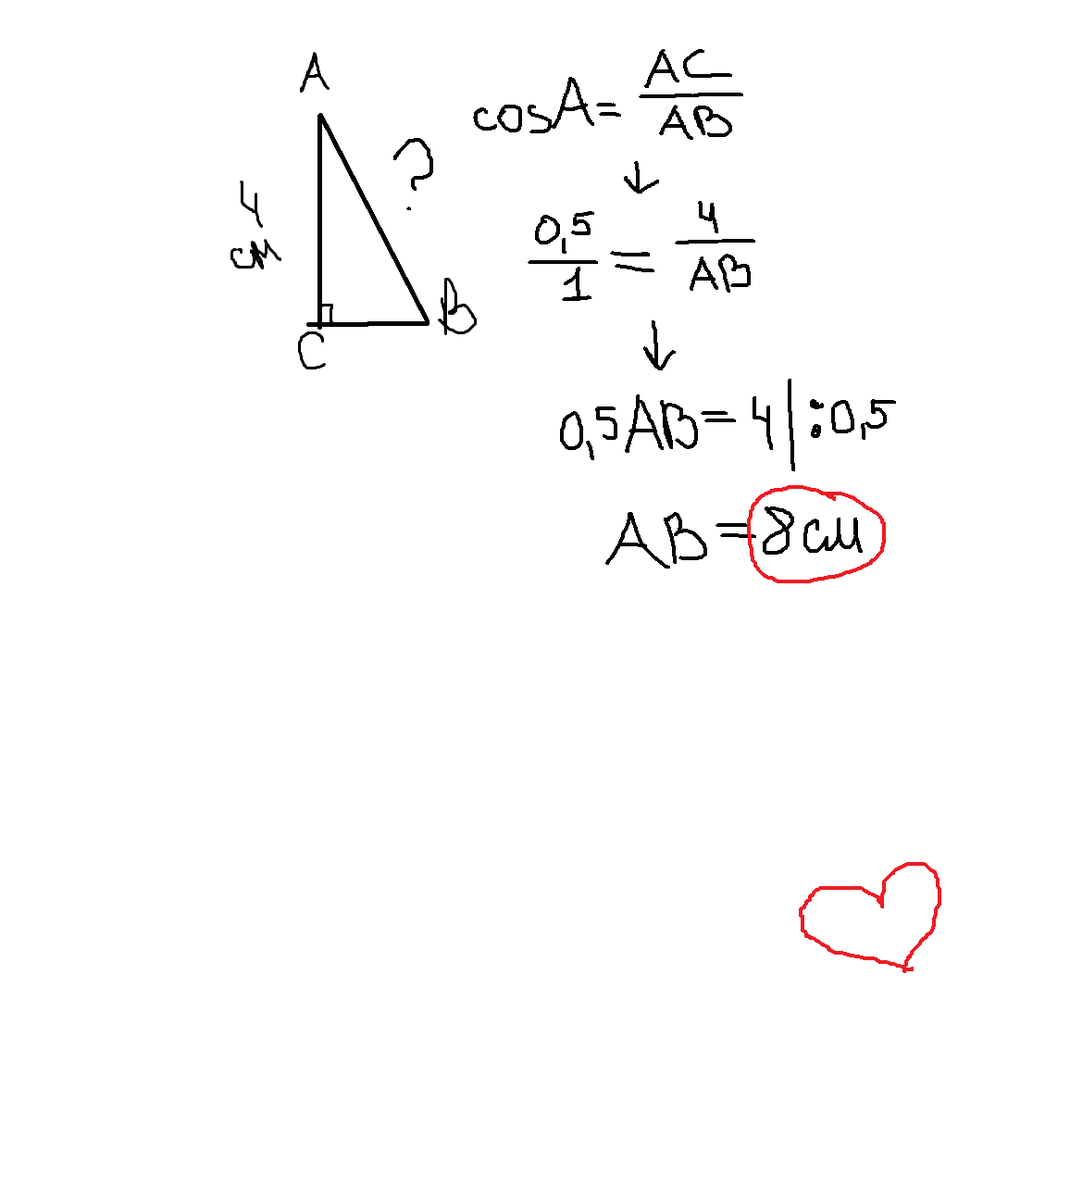 A
4
см
?
C
B
cosA = AC/AB
↓
0,5/1 = 4/AB
↓
0,5AB = 4 | :0,5
AB = 8см